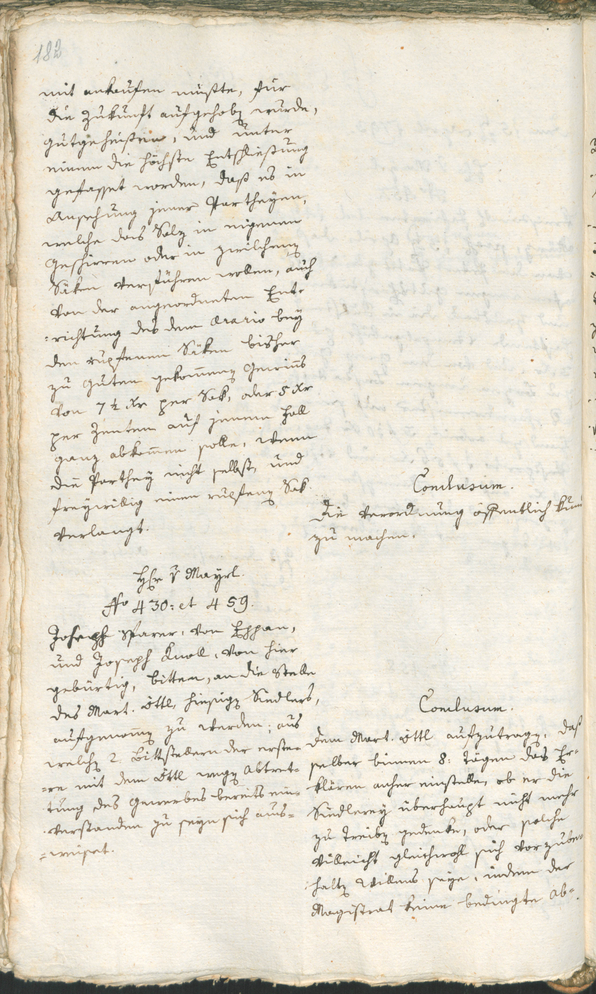 182
mit ankaufen müßte, für
die Zukunft aufgehobẽ wurde,
gutgeheißen, und unter
einem die höchste Entschließung
gefasset worden, daß es in
Ansehung jener Partheyen,
welche das Salz in eigenen
Geschirren oder in zwilchenẽ
Säken verführen wollen, auch
von der angeordneten Ent-
richtung des dem Aerario bey
den rupfenen Säken bisher
zu guten gekommenẽ Gewinns
von 7 ½ Xr per Sak, oder 5 Xr
per Zenten auf jenem Zoll
ganz abkommen solle, wenn
die Parthey nicht selbst, und
freywillig einen rupfenẽ Sak
verlangt.
Conclusum.
Die Verordnung öffentlich kun
zu machen.
Hr. v Mayrl.
No 430: et 459.
Joseph Sparer, von Eppan,
und Joseph Knoll, von hier
gebürtig, bitten, an die Stelle
des Mart. Öttl, hiesigẽ Siedlers,
aufgenommẽ zu werden; aus
welchẽ 2 Bittstellern der erste-
re mit dem Öttl wegẽ Abtret-
tung des Gewerbes bereits ein-
verstanden zu seyn sich aus-
weiset.
Conclusum.
Dem Mart. Öttl aufzutragẽ, daß
selber binnen 8: Tägen das Er-
klären anher einstelle, ob er die
Siedlerey überhaupt nicht mehr
zu treibẽ gedenke, oder solche
villeicht gleichwohl sich vorzube-
haltẽ Willens seye, indem der
Magistrat keine bedingte Ab-